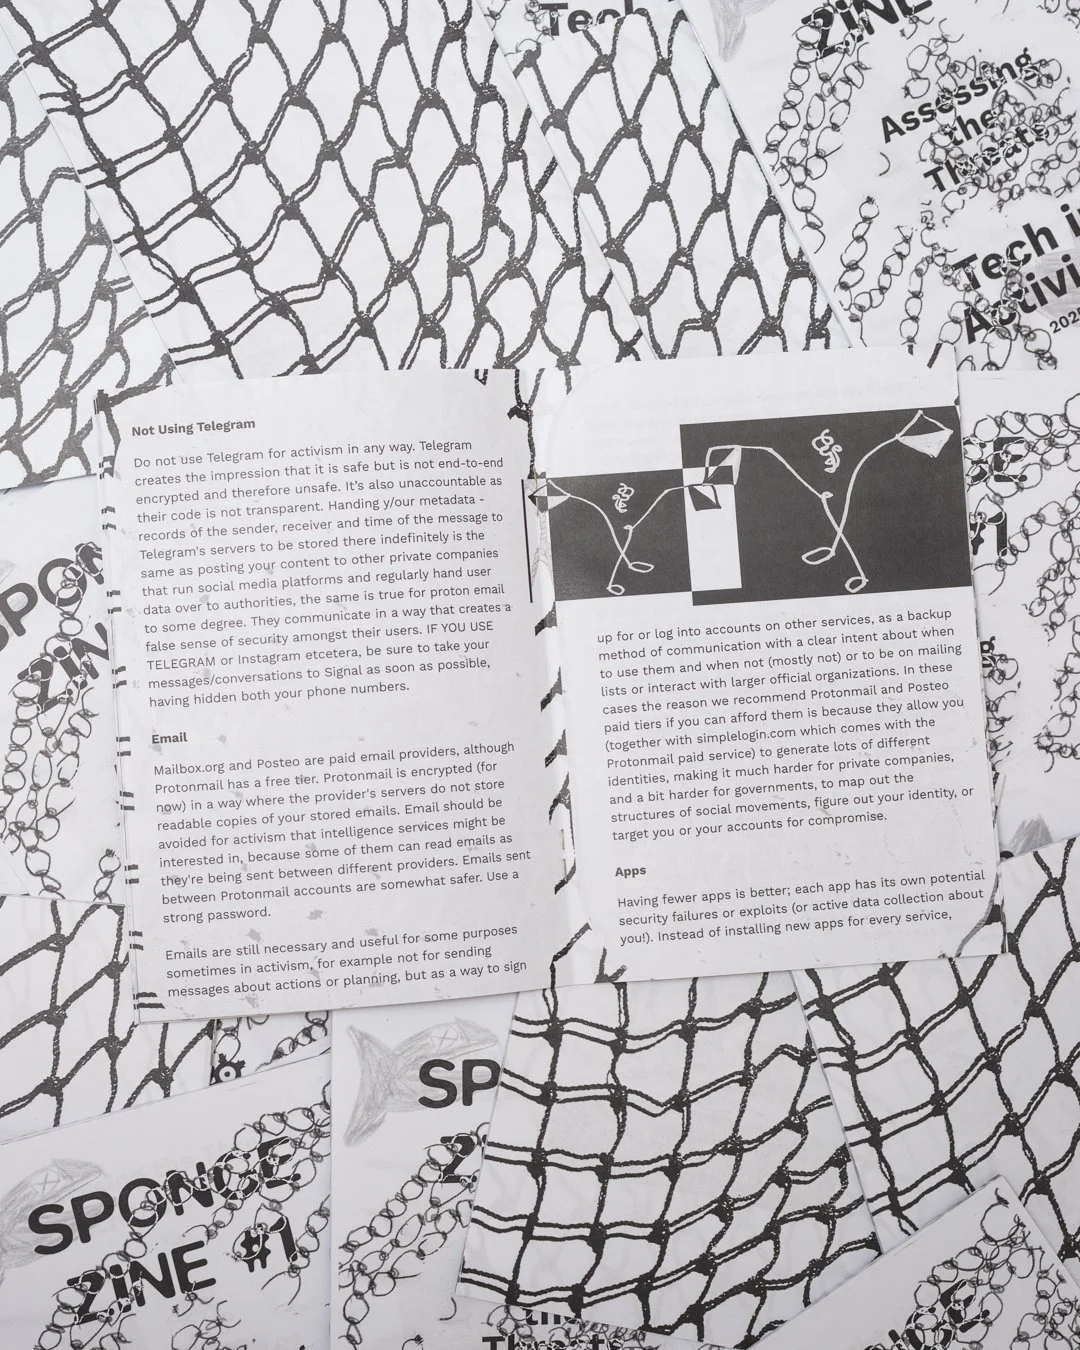 Tech
ZiNE
Assessing
the
Threats
Tech i
Activi
202
Not Using Telegram
Do not use Telegram for activism in any way. Telegram
creates the impression that it is safe but is not end-to-end
encrypted and therefore unsafe. It's also unaccountable as
their code is not transparent. Handing y/our metadata -
records of the sender, receiver and time of the message to
Telegram's servers to be stored there indefinitely is the
same as posting your content to other private companies
that run social media platforms and regularly hand user
data over to authorities, the same is true for proton email
to some degree. They communicate in a way that creates a
false sense of security amongst their users. IF YOU USE
TELEGRAM or Instagram etcetera, be sure to take your
messages/conversations to Signal as soon as possible,
having hidden both your phone numbers.
Email
Mailbox.org and Posteo are paid email providers, although
Protonmail has a free tier. Protonmail is encrypted (for
now) in a way where the provider's servers do not store
readable copies of your stored emails. Email should be
avoided for activism that intelligence services might be
interested in, because some of them can read emails as
they're being sent between different providers. Emails sent
between Protonmail accounts are somewhat safer. Use a
strong password.
Emails are still necessary and useful for some purposes
sometimes in activism, for example not for sending
messages about actions or planning, but as a way to sign
up for or log into accounts on other services, as a backup
method of communication with a clear intent about when
to use them and when not (mostly not) or to be on mailing
lists or interact with larger official organizations. In these
cases the reason we recommend Protonmail and Posteo
paid tiers if you can afford them is because they allow you
(together with simplelogin.com which comes with the
Protonmail paid service) to generate lots of different
identities, making it much harder for private companies,
and a bit harder for governments, to map out the
structures of social movements, figure out your identity, or
target you or your accounts for compromise.
Apps
Having fewer apps is better; each app has its own potential
security failures or exploits (or active data collection about
you!). Instead of installing new apps for every service,
SPON
ZiN
E
#1
SP
SPONGE
ZiNE #1
the
Threats